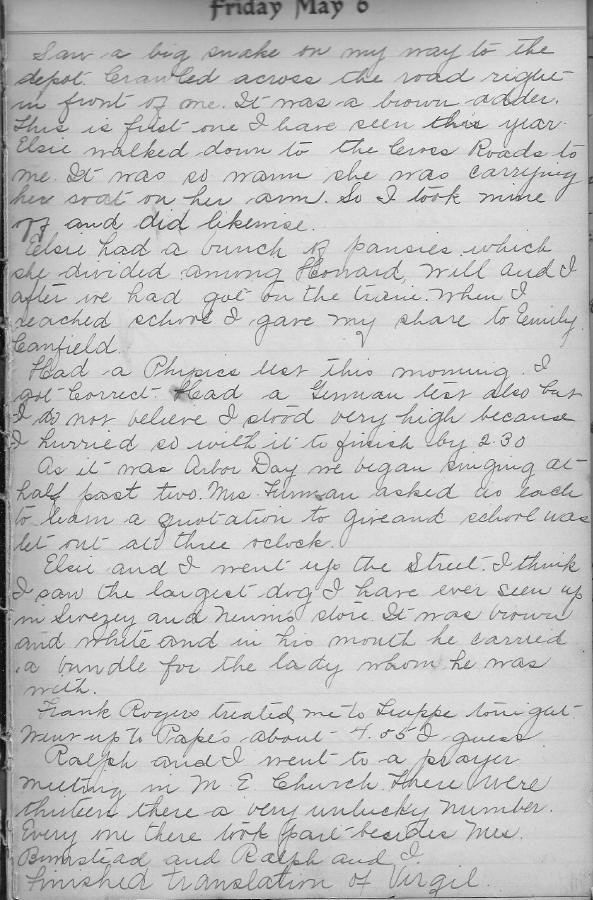 Friday May 6
Saw a big snake on my way to the
depot. Crawled across the road right
in front of me. It was a brown adder.
This is first one I have seen this year.
Elsie walked down to the Cross Roads to
me. It was so warm she was carrying
her coat on her arm. So I took mine
off and did likewise.
Elsie had a bunch of pansies which
she divided among Howard, Will and I
after we had got on the train. When I
reached school I gave my share to Emily
Canfield.
Had a Physics test this morning. I
got Correct. Had a German test also but
I do not believe I stood very high because
I hurried so with it to finish by 2.30
As it was Arbor Day we began singing at
half past two. Mrs. asked us each
to learn a quotation to give and school was
let out at three oclock.
Elsie and I went up the Street. I think
I saw the largest dog I have ever seen up
in Swezey and Newins store. It was brown
and white and in his mouth he carried
a bundle for the lady whom he was
with.
Frank Rogers treated me to Frappe tonight
Went up to Papes about 4.05 I guess
Ralph and I went to a prayer
meeting in M E. Church. There were
thirteen there a very unlucky number.
Every one there took part besides Mrs.
Bumstead and Ralph and I.
Finished translation of Virgil.